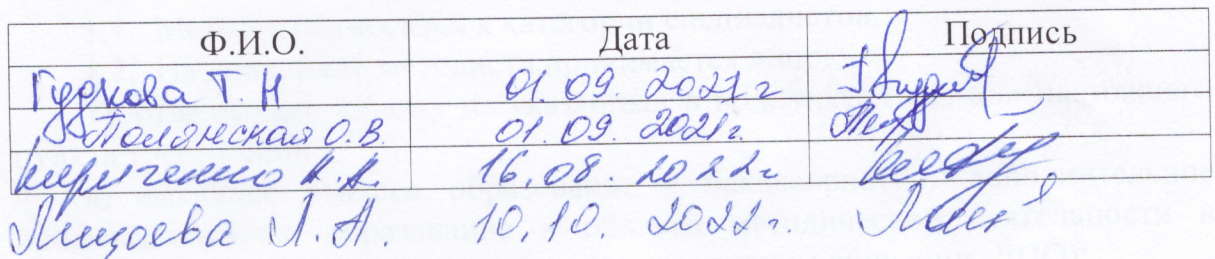 Ф.И.О. Дата Подпись
Гудкова Т. Н 01.09. 2021 г
Полянская О.В. 01.09. 2021г.
Кириченко А.А. 16.08. 2022г
Л. А. 10.10. 2022г.